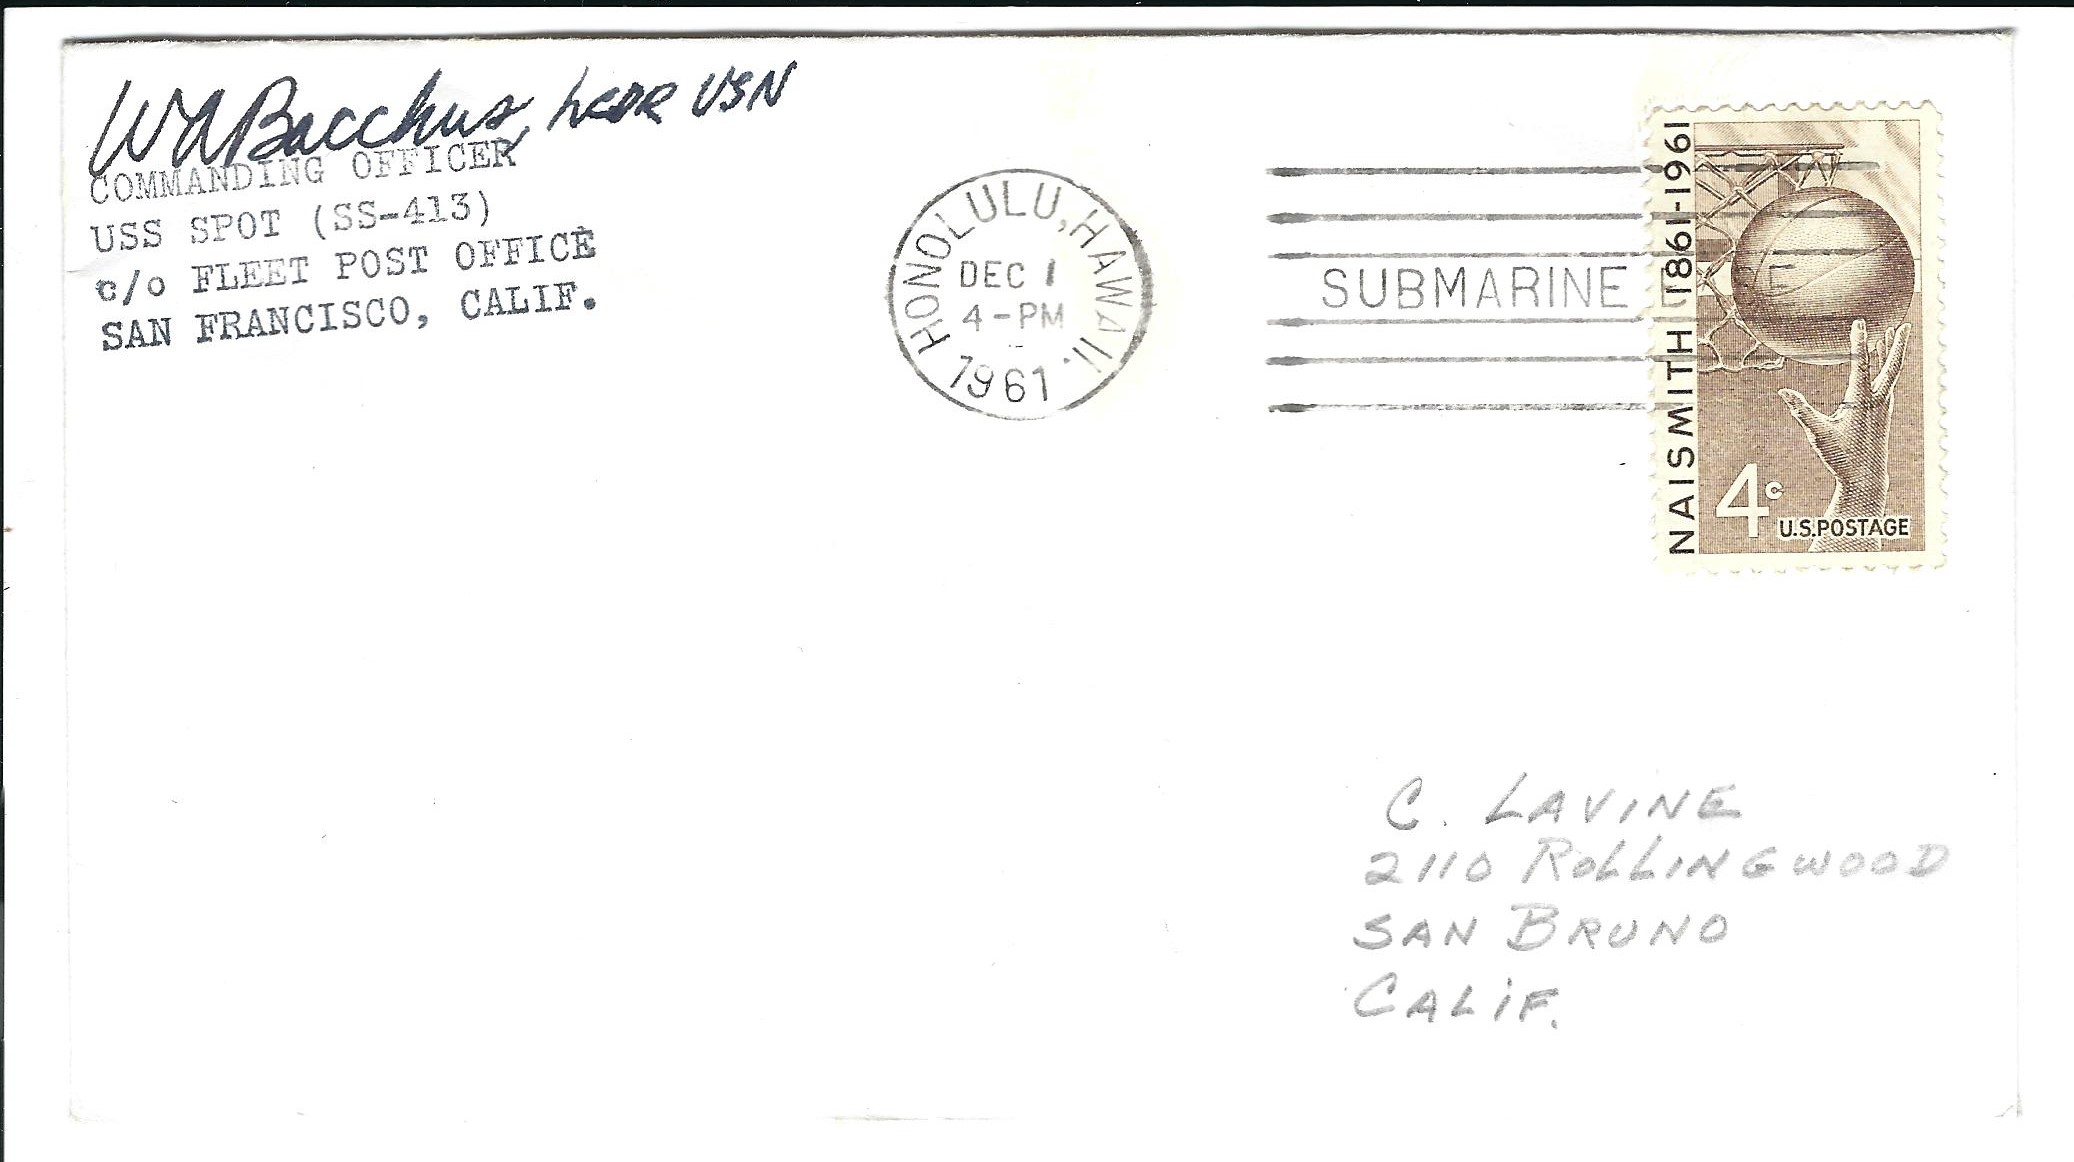 WA Bacchus, LCDR USN
COMMANDING OFFICER
USS SPOT (SS-413)
c/o FLEET POST OFFICE
SAN FRANCISCO, CALIF.
HONOLULU, HAWAII.
DEC 1
4-PM
1961
SUBMARINE
NAISMITH 1861-1961
4c
U.S.POSTAGE
C. LAVINE
2110 ROLLINGWOOD
SAN BRUNO
CALIF.